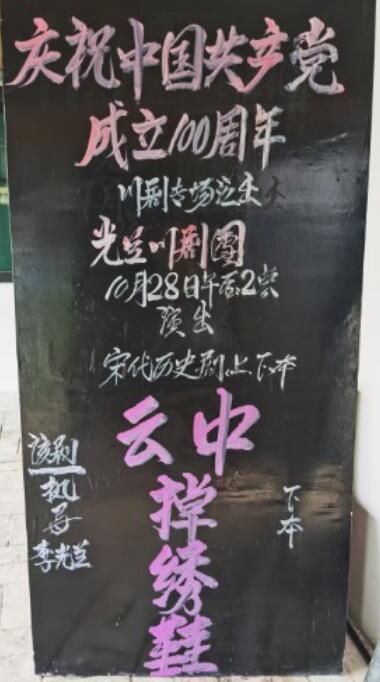 庆祝中国共产党
成立100周年
川剧专场演出
光兰川剧團
10月28日午后2点
演出
宋代历史剧上下本
云中
掉
绣
鞋
下本
该剧
李光兰